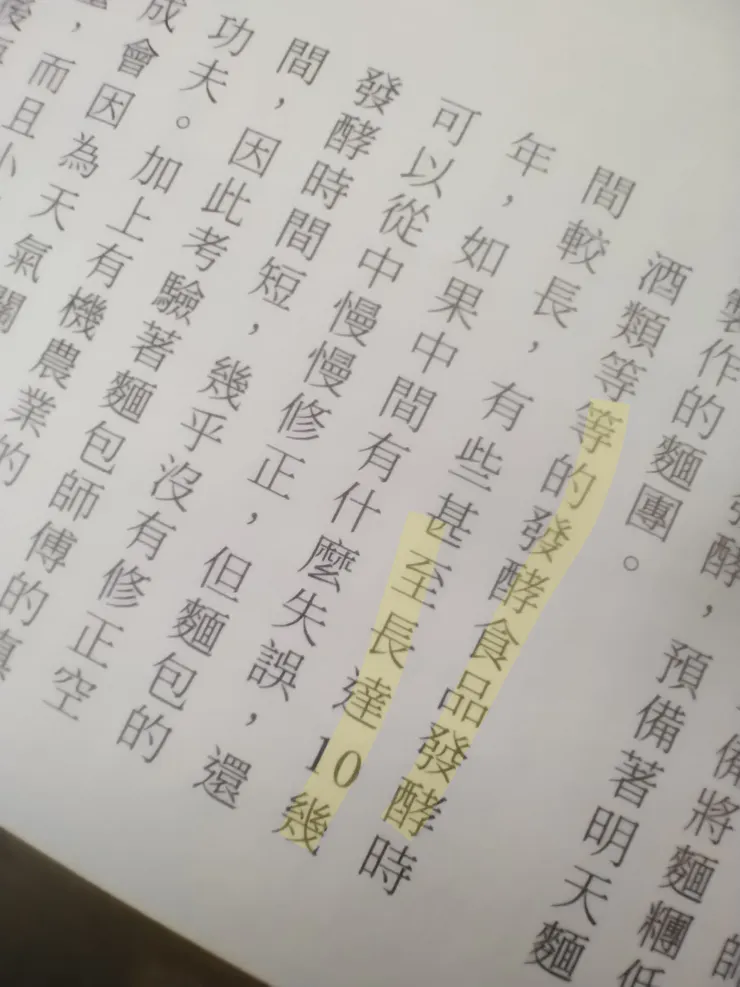 備將麵糰低
發酵，預備著明天麵
製作的麵團。
酒類等等的發酵食品發酵時
間較長，有些甚至長達10幾
年，如果中間有什麼失誤，還
可以從中慢慢修正，但麵包的
發酵時間短，幾乎沒有修正空
間，因此考驗著麵包師傅的真
功夫。加上有機農業的
成會因為天氣關
，而且小